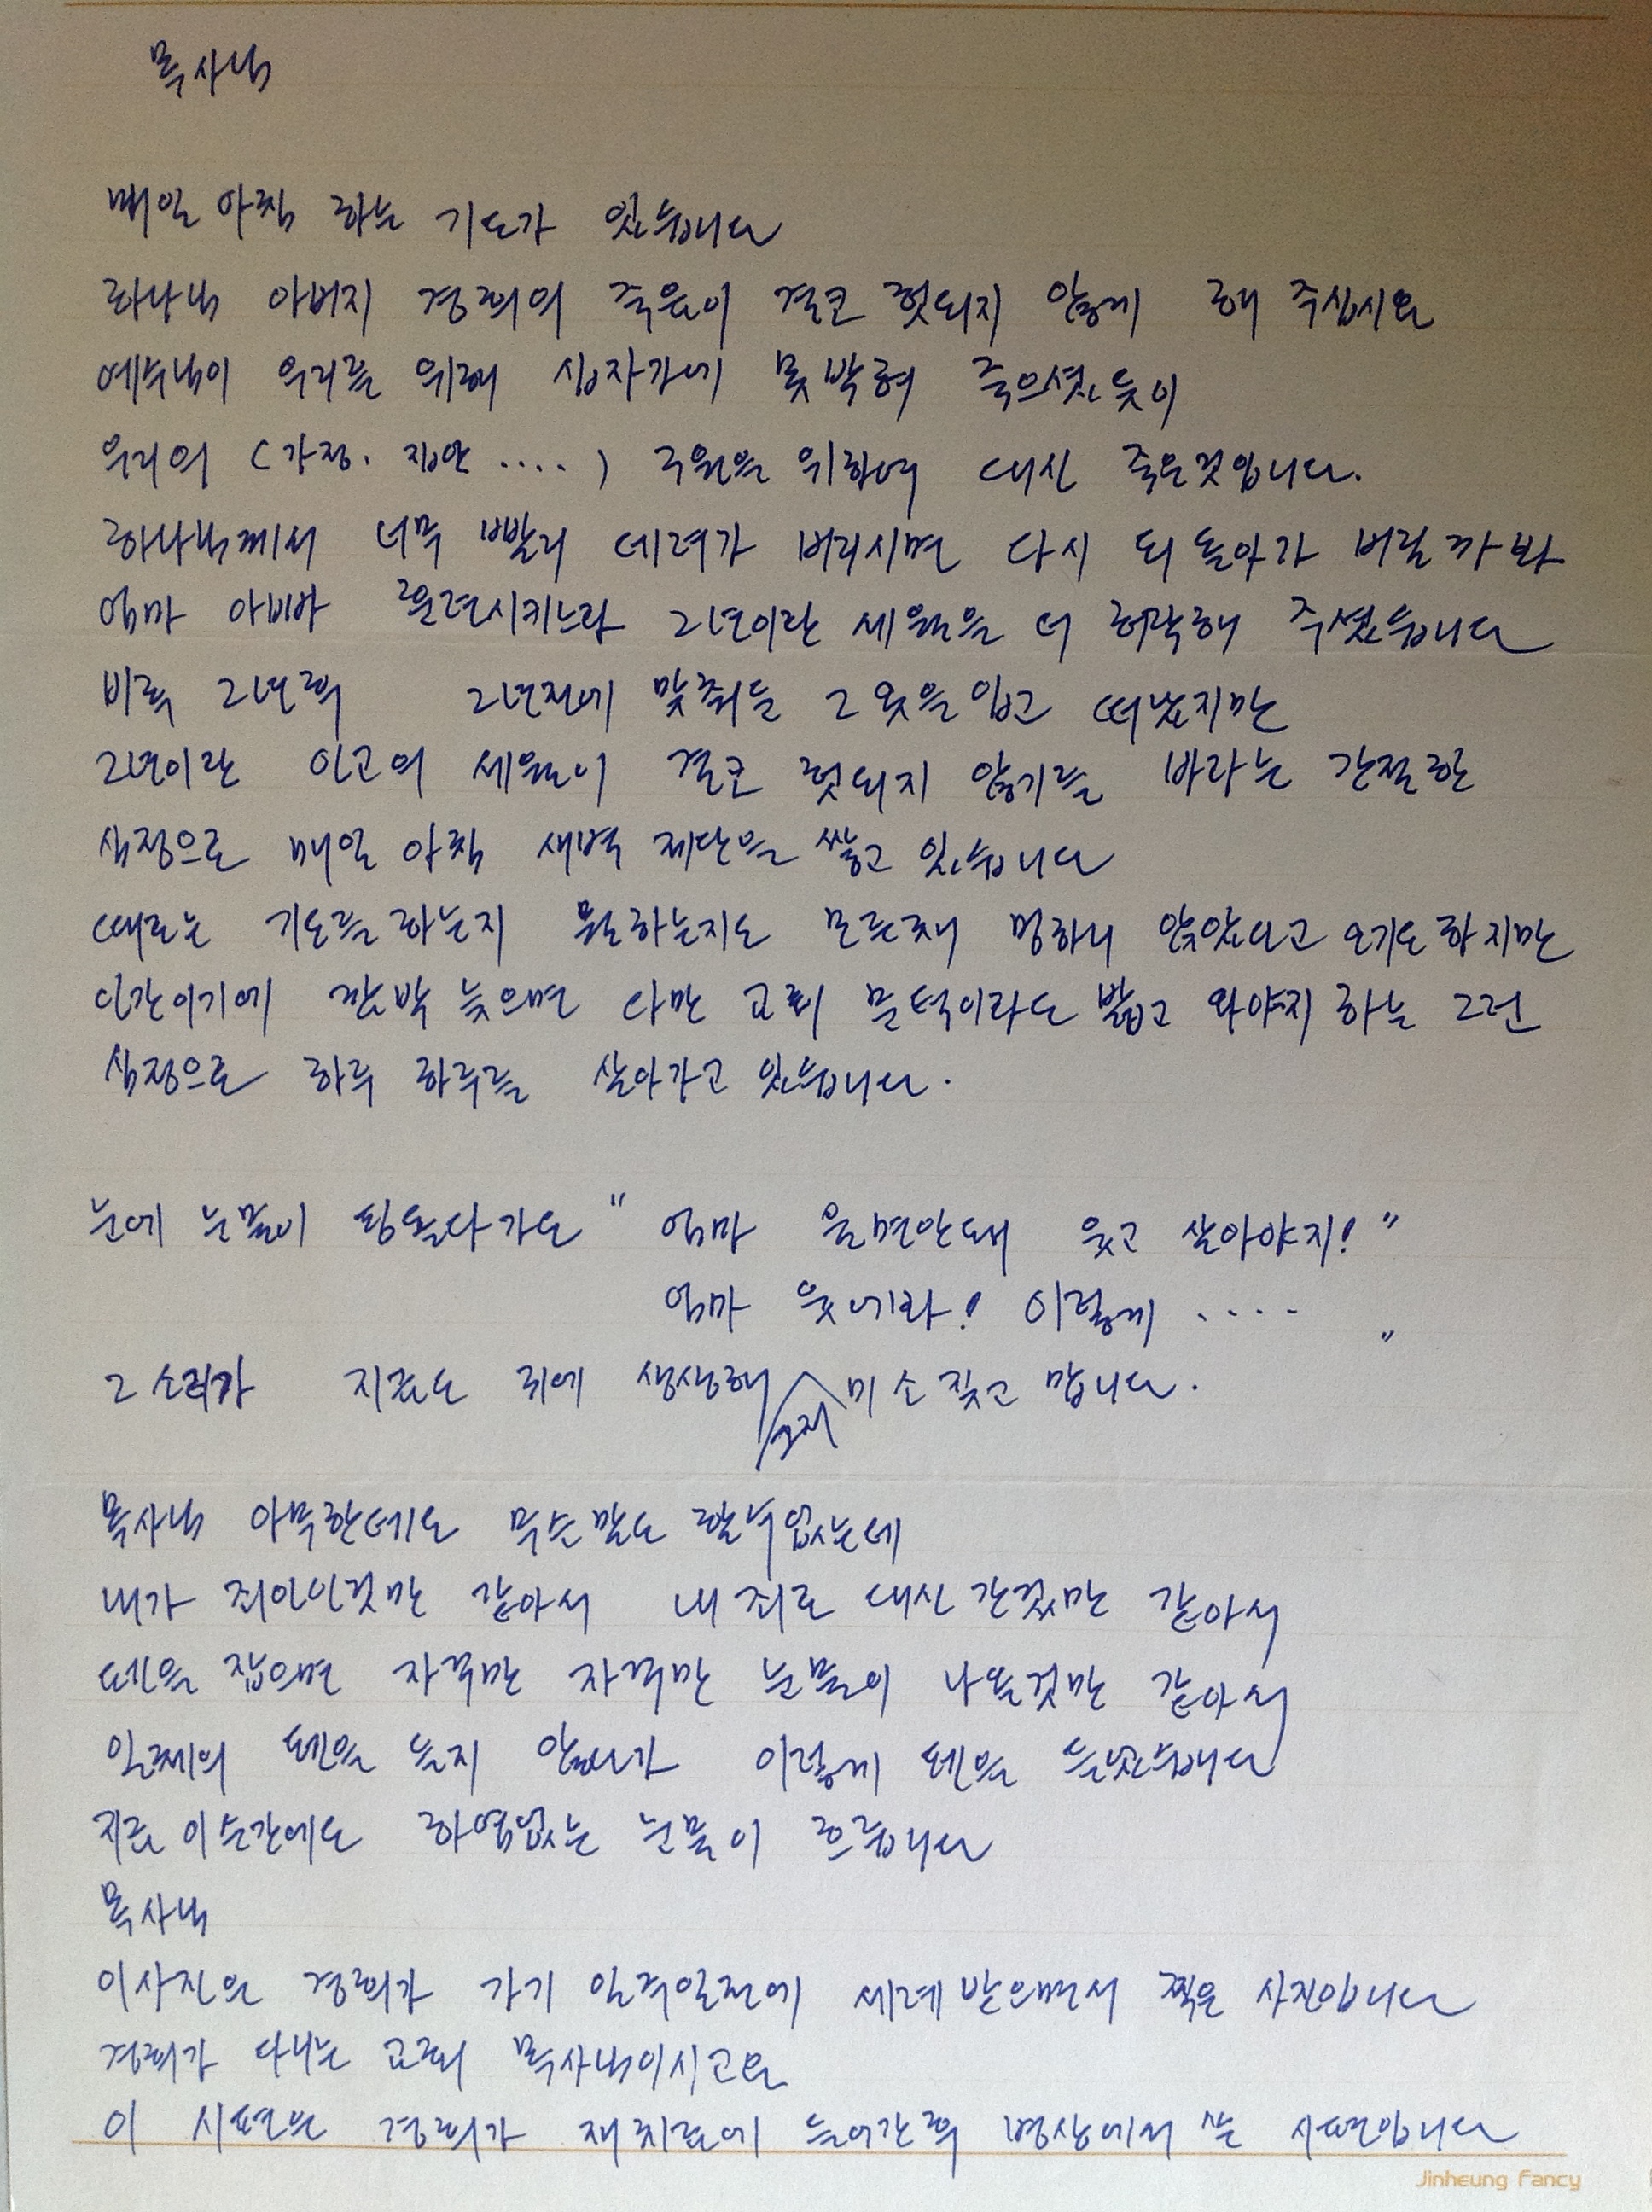 목사님
매일 아침 하는 기도가 있습니다
하나님 아버지 경희의 죽음이 결코 헛되지 않게 해 주십시요
예수님이 우리를 위해 십자가에 못박혀 죽으셨듯이
우리의 (가정. 집안 ....) 구원을 위하여 대신 죽은것입니다.
하나님께서 너무 빨리 데려가 버리시면 다시 되돌아가 버릴까봐
엄마 아빠 훈련시키느라 2년이란 세월을 더 허락해 주셨습니다
비록 2년후 2년전에 맞춰둔 그 옷을 입고 떠났지만
2년이란 인고의 세월이 결코 헛되지 않기를 바라는 간절한
심정으로 매일 아침 새벽 제단을 쌓고 있습니다
때로는 기도를 하는지 뭘하는지도 모른채 멍하니 앉았다고 오기도 하지만
인간이기에 깜박 늦으면 다만 교회 문턱이라도 밟고 와야지 하는 그런
심정으로 하루 하루를 살아가고 있습니다.
눈에 눈물이 핑돌다가도 " 엄마 울면안돼 웃고 살아야지! "
엄마 웃어라! 이렇게 .... "
그 소리가 지금도 귀에 생생해 그저 미소 짓고 맙니다.
목사님 아무한테도 무슨말도 할수없는데
내가 죄인인것만 같아서 내 죄로 대신 간것만 같아서
펜을 잡으면 자꾸만 자꾸만 눈물이 나올것만 같아서
일체의 펜을 들지 않다가 이렇게 펜을 들었습니다
지금 이순간에도 하염없는 눈물이 흐릅니다
목사님
이사진은 경희가 가기 일주일전에 세례받으면서 찍은 사진입니다
경희가 다니는 교회 목사님이시고요
이 시편은 경희가 재치료에 들어간후 병상에서 쓴 시편입니다
Jinheung Fancy